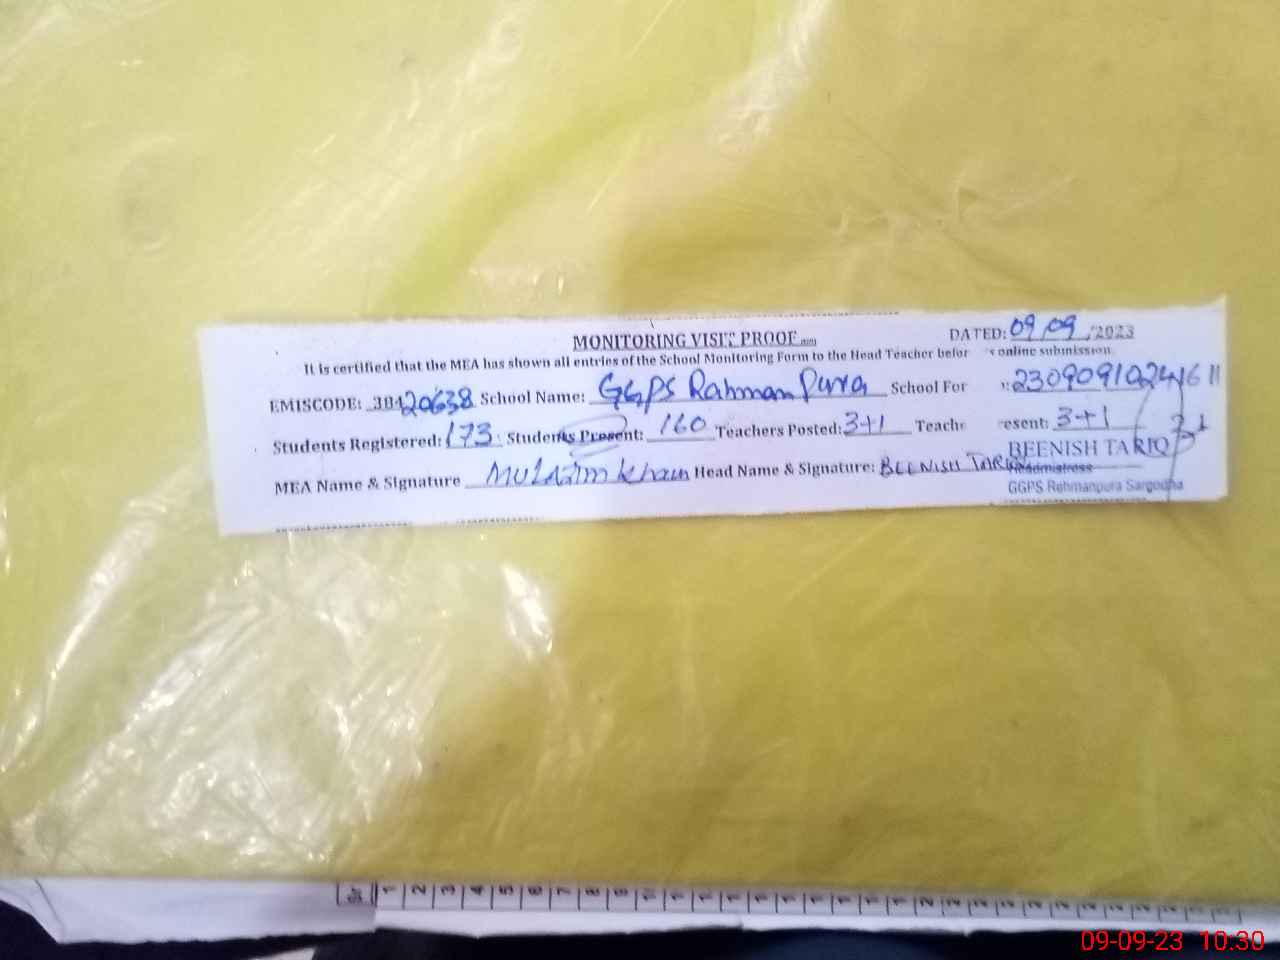 MONITORING VISIT PROOF
DATED: 09/09/2023
It is certified that the MEA has shown all entries of the School Monitoring Form to the Head Teacher befor s online submission.
EMISCODE: 38420638 School Name: GGPS Rahman Pura School For
Students Registered: 173 Students Present: 160 Teachers Posted: 3+1 Teache esent: 3+1
MEA Name & Signature Mulazim Khan Head Name & Signature: BEENISH TARIQ
BEENISH TARIQ
Headmistress
GGPS Rehmanpura Sargodha
Sr 1 2 3 4 5 6 7 8 9
09-09-23 10:30